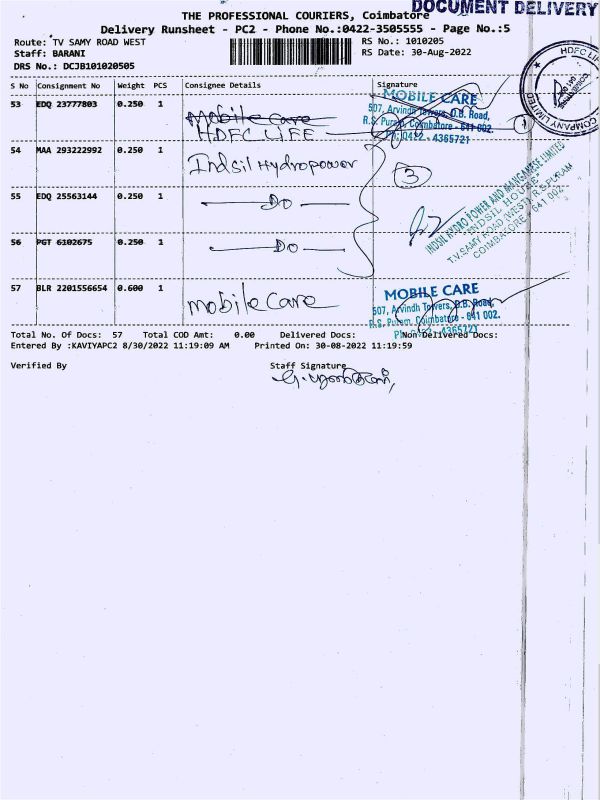 DOCUMENT DELIVERY
THE PROFESSIONAL COURIERS, Coimbatore
Delivery Runsheet - PC2 - Phone No.:0422-3505555 - Page No.:5
Route: TV SAMY ROAD WEST
RS No.: 1010205
Staff: BARANI
RS Date: 30-Aug-2022
DRS No.: DCJB101020505
HDFC LIF
COMPANY LIMITED
S No Consignment No Weight PCS Consignee Details Signature
53 EDQ 23777803 0.250 1
Mobile Care
HDFC LIFE
MOBILE CARE
507, Arvindh Towers, D.B. Road,
R.S. Puram, Coimbatore - 641 002.
Ph: 0422 - 4365721
1
54 MAA 293222992 0.250 1 Indsil Hydropower
3
55 EDQ 25563144 0.250 1 Do
INDSIL HYDRO POWER AND MANGANESE LIMITED
"INDSIL HOUSE"
T.V. SAMY ROAD (WEST), R.S. PURAM
COIMBATORE - 641 002
56 PGT 6102675 0.250 1 Do
57 BLR 2201556654 0.600 1 Mobile Care
MOBILE CARE
507, Arvindh Towers, D.B. Road,
R.S. Puram, Coimbatore - 641 002.
Ph: 0422 - 4365721
Total No. Of Docs: 57 Total COD Amt: 0.00 Delivered Docs: Non-Delivered Docs:
Entered By :KAVIYAPC2 8/30/2022 11:19:09 AM Printed On: 30-08-2022 11:19:59
Verified By Staff Signature